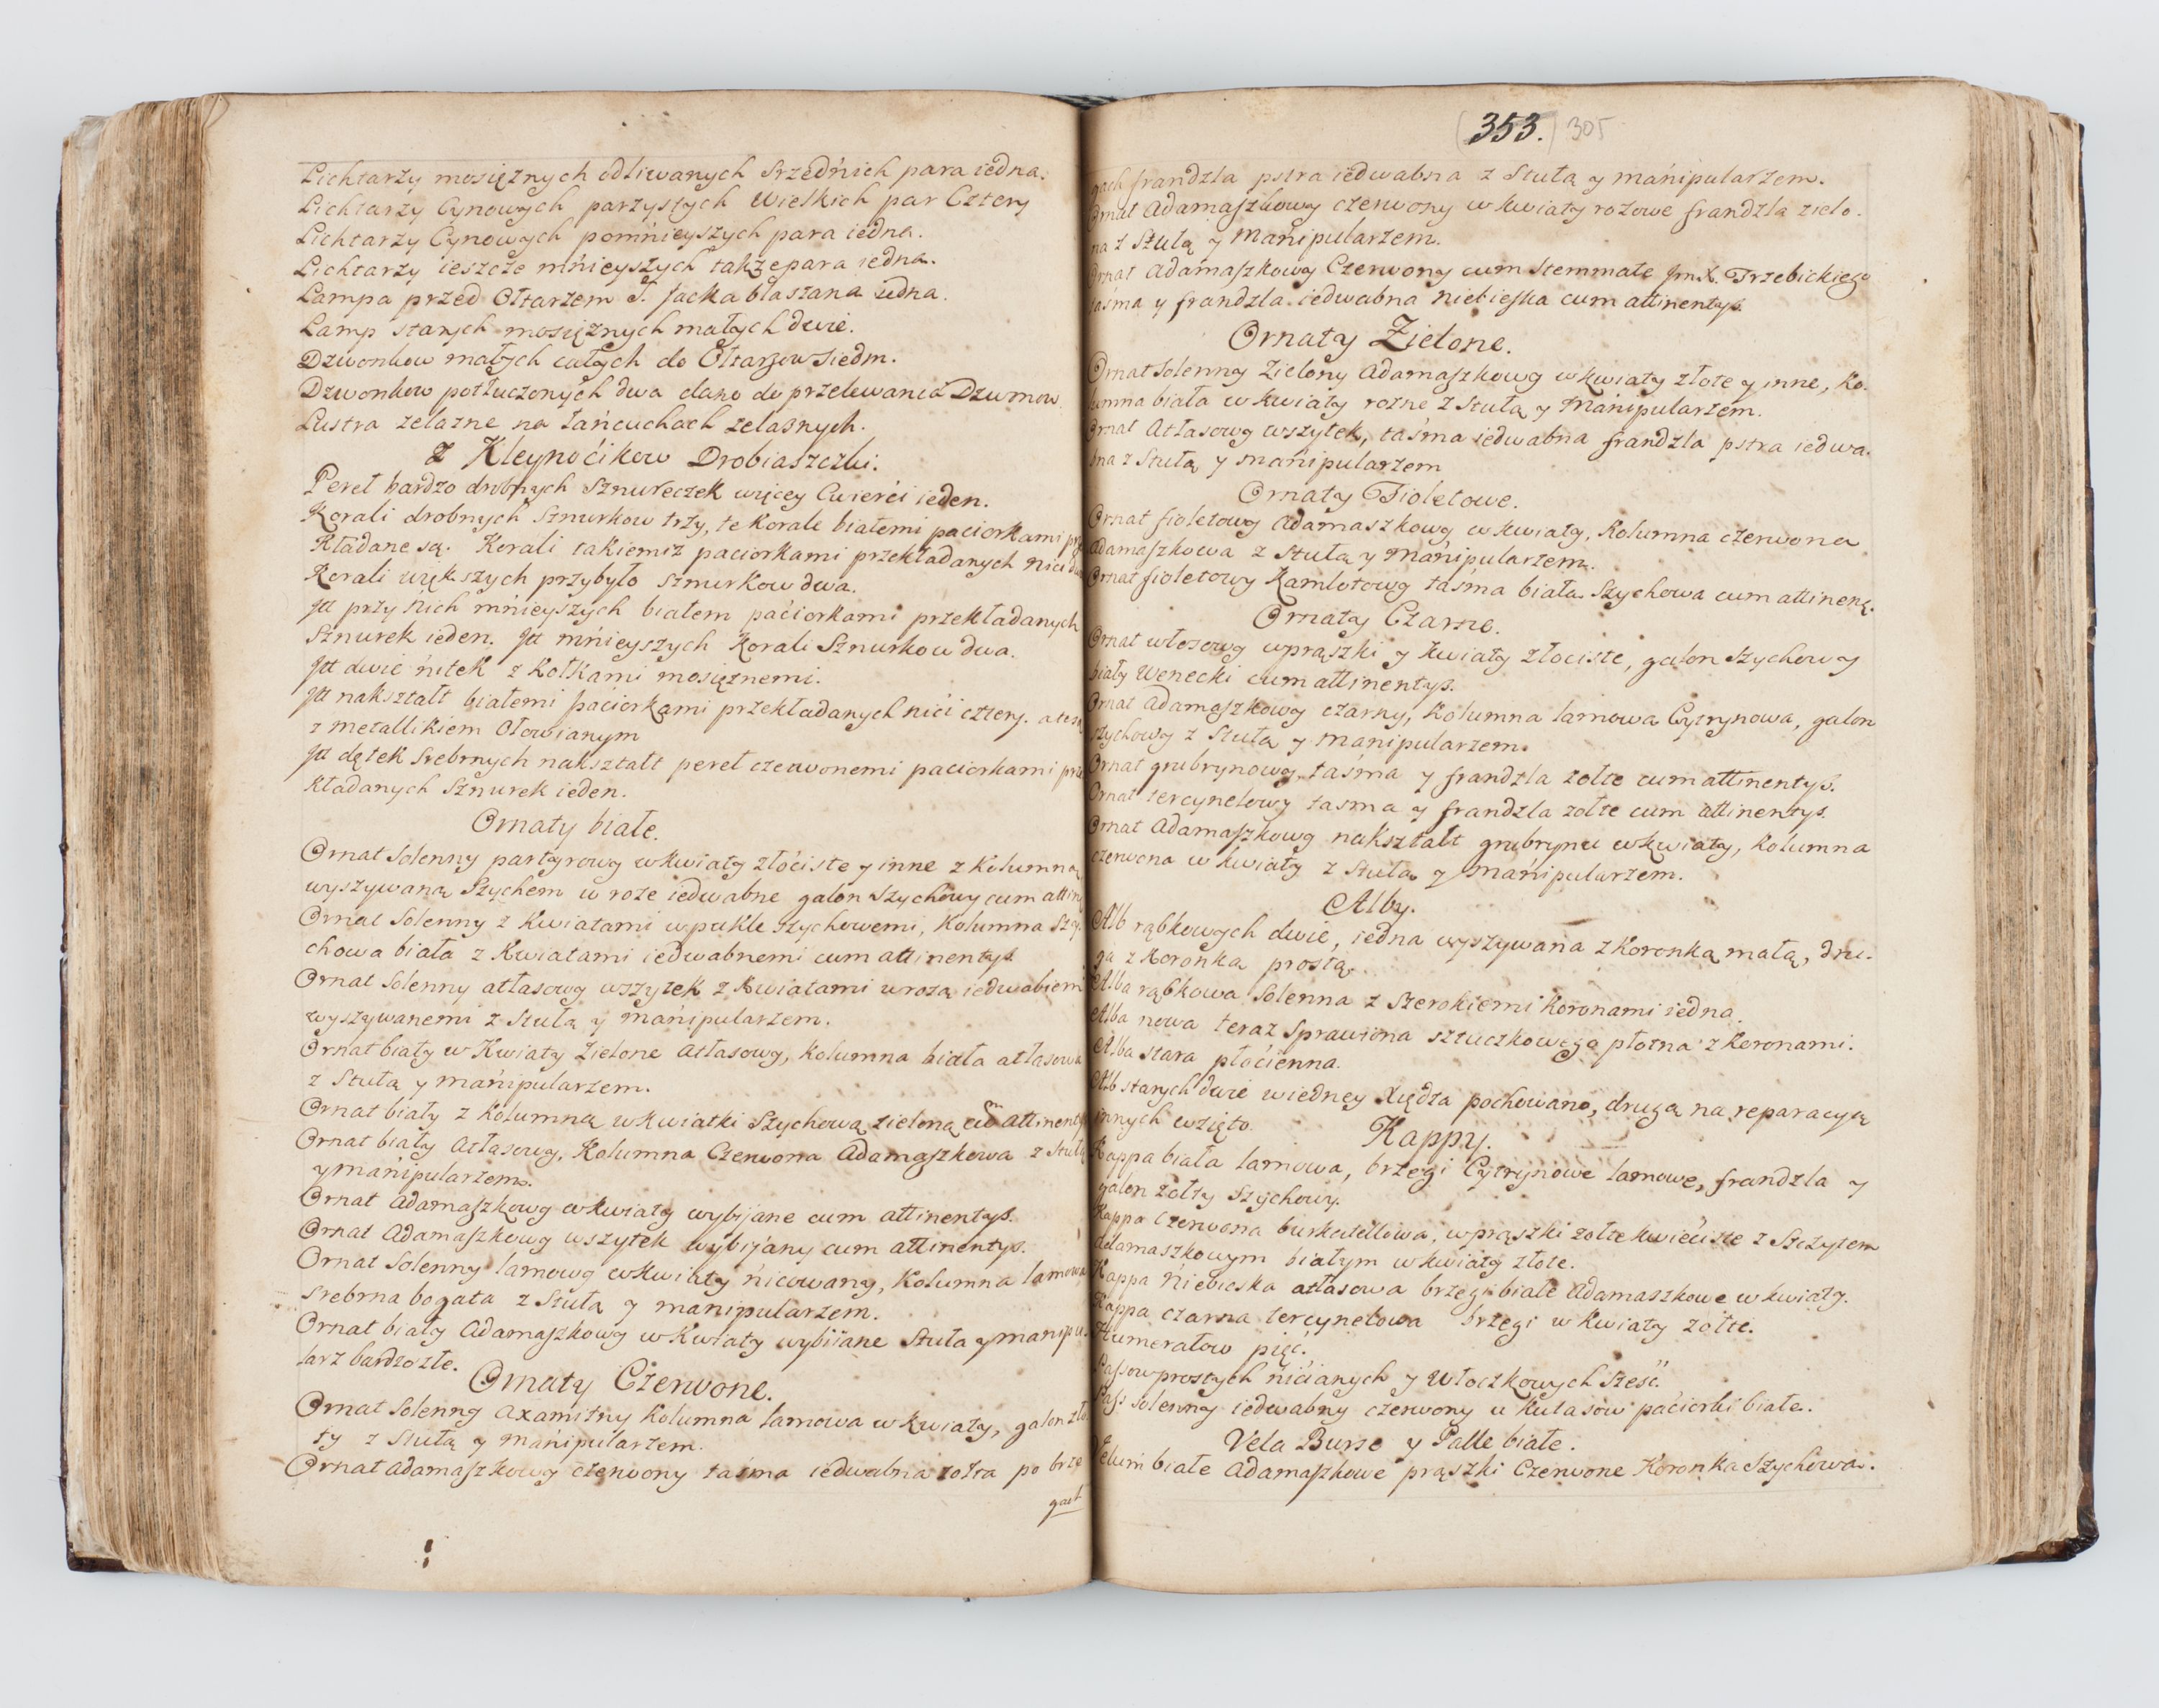 Lichtarzy mosiężnych odliwanych srzednich para iedna.
Lichtarzy Cynowych parzystych Wielkich par Cztery
Lichtarzy Cynowych pomnieyszych para iedna.
Lichtarzy ieszcze mńieyszych takze para iedna.
Lampa przed Ołtarzem S. Jacka blaszana iedna.
Lamp starych mosiężnych małych dwie.
Dzwonkow małych całych do Ołtarzow Siedm.
Dzwonkow potłuczonych dwa dano do przelewania Dzwonow
Lustra zelazne na łańcuchach zelaznych.
Z Kleynoćikow Drobiaszczki.
Pereł bardzo drobnych sznureczek więcey Cwierći ieden.
Korali drobnych sznurkow trzy, te Korale białemi paciorkami prze
Kładane są. Korali takiemiz paciorkami przekładanych nici dwie
Korali większych przybyło sznurkow dwa.
Itt przy nich mńieyszych białem paćiorkami przekładanych
Sznurek ieden. Itt mńieyszych Korali Sznurkow dwa.
Itt dwie ńitek z Kołkami mosiężnemi.
Itt nakształt białemi paćiorkami przekładanych nici cztery. a te są
z metallikiem Ołowianym
Itt dętek srebrnych nakształt pereł czerwonemi paciorkami prze
Kładanych Sznurek ieden.
Ornaty białe.
Ornat Solenny partyrowy w kwiaty złóciste y inne z Kolumną
wyszywaną Szychem w roze iedwabne galon Szychowy cum attin
Ornat Solenny z Kwiatami wpukle szychowemi, Kolumna Szy
chowa biała z Kwiatami iedwabnemi cum attinentys.
Ornat Solenny atłasowy wszytek z Kwiatami w rozą iedwabiem
wyszywanemi z Stułą y mańipularzem.
Ornat biały w Kwiaty Zielone Atłasowy, Kolumna biała atłasowa
z Stułą y mańipularzem.
Ornat biały z Kolumną w kwiatki Szychową zieloną cum attinenty
Ornat biały Atłasowy, Kolumna Czerwona Adamaszkowa z Stułą
y mańipularzem.
Ornat Adamaszkowy w kwiaty wybijane cum attinentys.
Ornat Adamaszkowy wszytek wybijany cum attinentys.
Ornat Solenny lamowy w kwiaty ńicowany, Kolumna lamowa
srebrna bogata z Stułą y manipularzem.
Ornat biały Adamaszkowy w Kwiaty wybiiane Stuła y manipu
larz bardzo złe.
Ornaty Czerwone.
Ornat Solenny Axamitny Kolumna lamowa w kwiaty, galon zło
ty z Stułą y mańipularzem.
Ornat Adamaszkowy czerwony taśma iedwabna zołta po brze
gach
353. 305
gach frandzla pstra iedwabna z Stułą y mańipularzem.
Ornat Adamaszkowy czerwony w kwiaty rozowe frandzla zielo-
na z Stułą y Mańipularzem.
Ornat Adamaszkowy Czerwony cum Stemmate Jm X. Trzebickiego
taśma y frandzla iedwabna niebieska cum attinentys.
Ornaty Zielone.
Ornat Solenny Zielony Adamaszkowy w kwiaty złote y inne, Ko-
lumna biała w kwiaty rozne z Stułą y Mańipularzem.
Ornat Atłasowy wszytek, taśma iedwabna frandzla pstra iedwa-
bna z Stułą y mańipularzem
Ornaty Fioletowe.
Ornat fioletowy Adamaszkowy w kwiaty, Kolumna czerwona
Adamaszkowa z Stułą y mańipularzem.
Ornat fioletowy Kamlotowy taśma biała Szychowa cum attinen.
Ornaty Czarne.
Ornat włosowy w prąszki y Kwiaty złociste, galon szychowy
biały Wenecki cum attinentys.
Ornat Adamaszkowy czarny, Kolumna lamowa Cytrynowa, galon
szychowy z Stułą y manipularzem.
Ornat grubrynowy, taśma y frandzla zołte cum attinentys.
Ornat tercynelowy tasma y frandzla zołte cum attinentys.
Ornat Adamaszkowy nakształt grubrynu w kwiaty, Kolumna
czerwona w kwiaty z Stułą y mańipularzem.
Alby.
Alb rąbkowych dwie, iedna wyszywana z Koronką małą, dru-
ga z Koronką prostą.
Alba rąbkowa Solenna z szerokiemi Koronami iedna.
Alba nowa teraz Sprawiona sztuczkowego płotna z Koronami.
Alba stara płocienna.
Alb starych dwie w iedney Xiędza pochowano, drugą na reparacyą
innych wzięto.
Kappy.
Kappa biała lamowa, brzegi Cytrynowe lamowe, frandzla y
galon zołty szychowy.
Kappa czerwona burkatellowa, w prąszki zołte kwieciste z Szczytem
Adamaszkowym białym w kwiaty złote.
Kappa Niebieska atłasowa brzegi białe Adamaszkowe w kwiaty.
Kappa czarna tercynelowa brzegi w kwiaty zołte.
Humerałow pięć.
Passow prostych nićianych y włoczkowych sześć.
Pass Solenny iedwabny czerwony u Kutasow paćiorki białe.
Vela Bursę y Palle białe.
Velum białe Adamaszkowe prąszki Czerwone Koronka Szychowa.